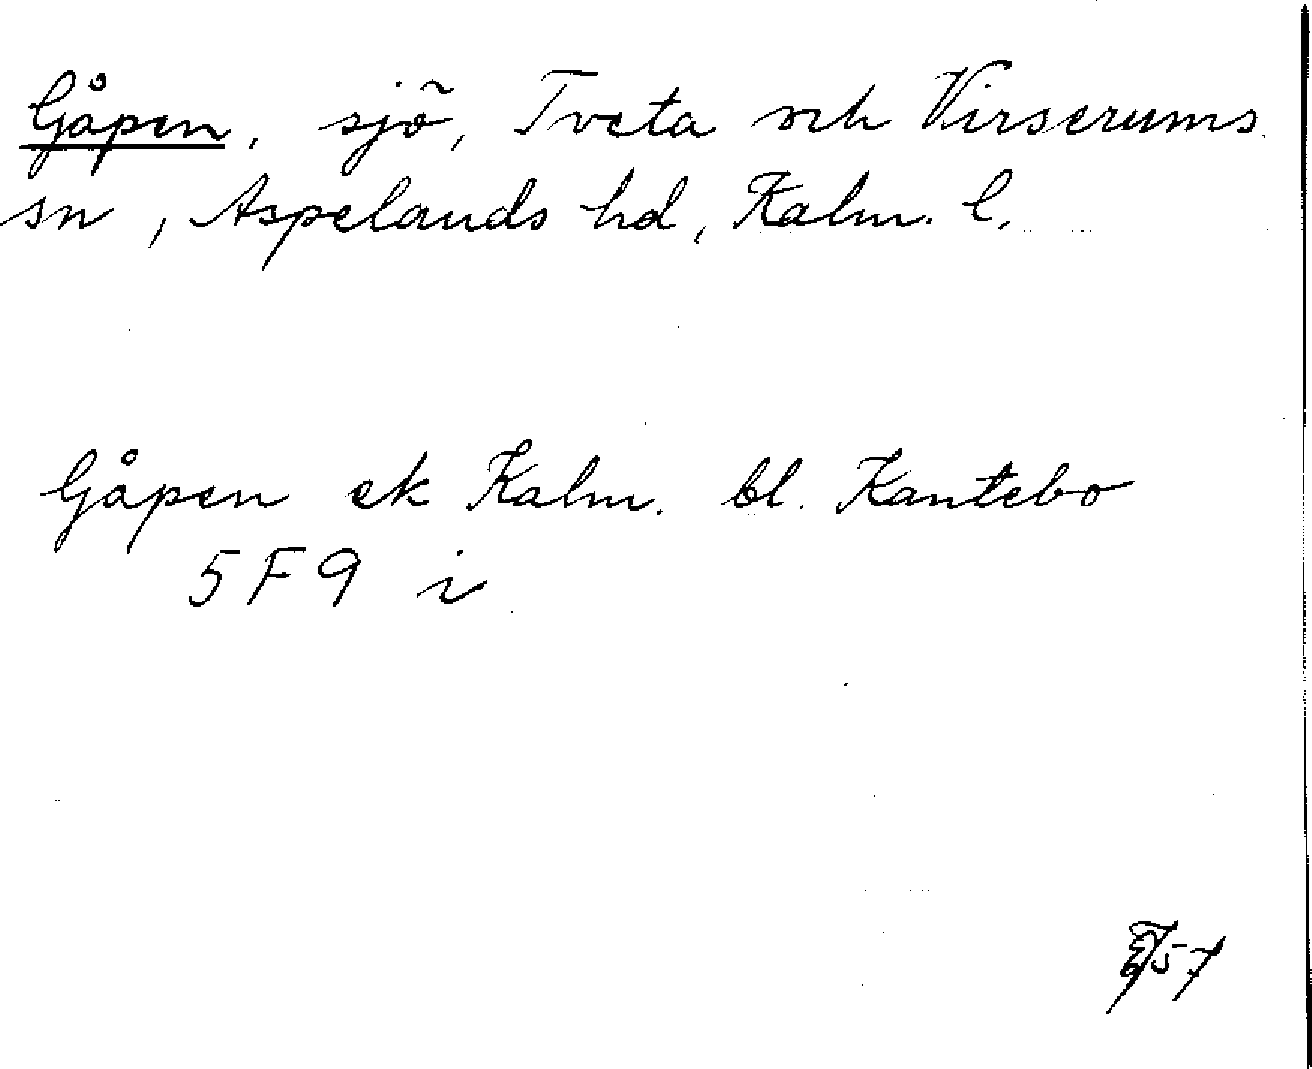 Gåpen, sjö, Tveta och Virserums
sn, Aspelands hd, Kalm. l.
Gåpen ek Kalm. bl. Kantebo
5F9 i